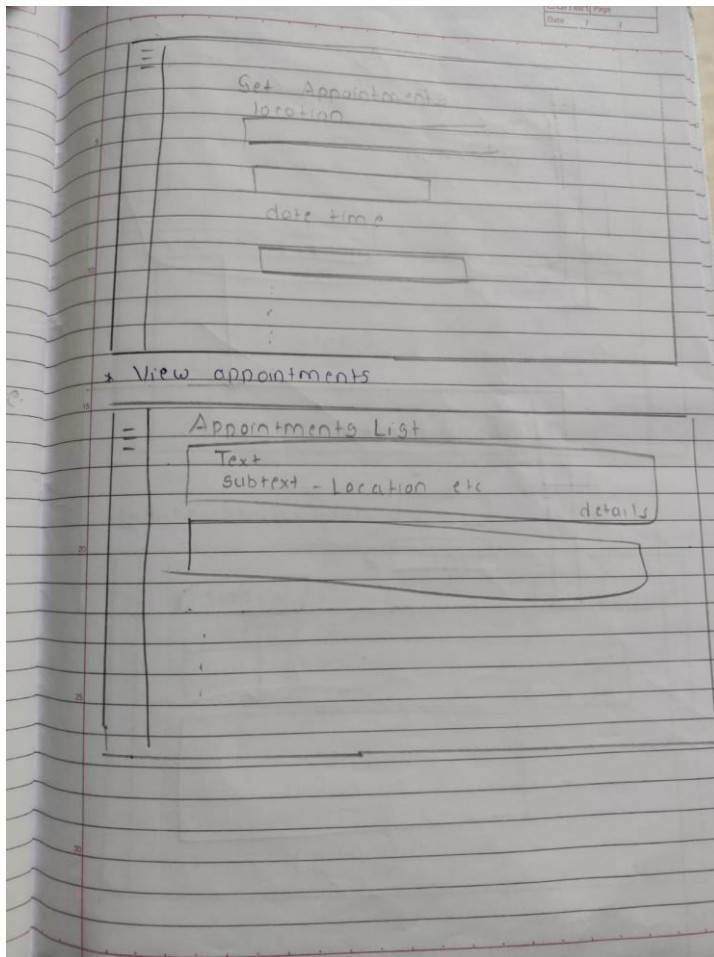 Page
Date / /
Get Appointments
location
date time
* View appointments
15
Appointments List
Text
Subtext - Location etc
details
20
25
30